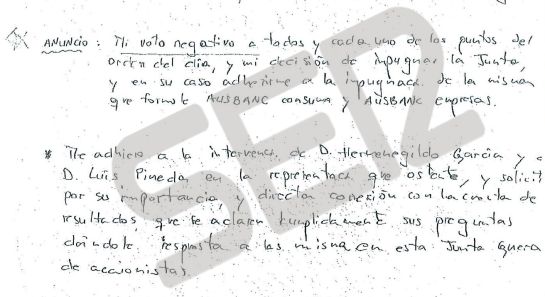 ANUNCIO : Mi voto negativo a todos y cada uno de los puntos del
orden del día, y mi decisión de impugnar la Junta,
y en su caso adherirme a la impugnac. de la misma
que formule AUSBANC consumo y AUSBANC empresas.
* Me adhiero a la intervenc. de D. Hermenegildo García y a
D. Luis Pineda, en la representac. que ostente, y solicit
por su importancia y directa conexión con la cuenta de
resultados, que se aclaren cumplidamente sus preguntas
dándole respuesta a las misma en esta Junta Genera
de accionistas
SER